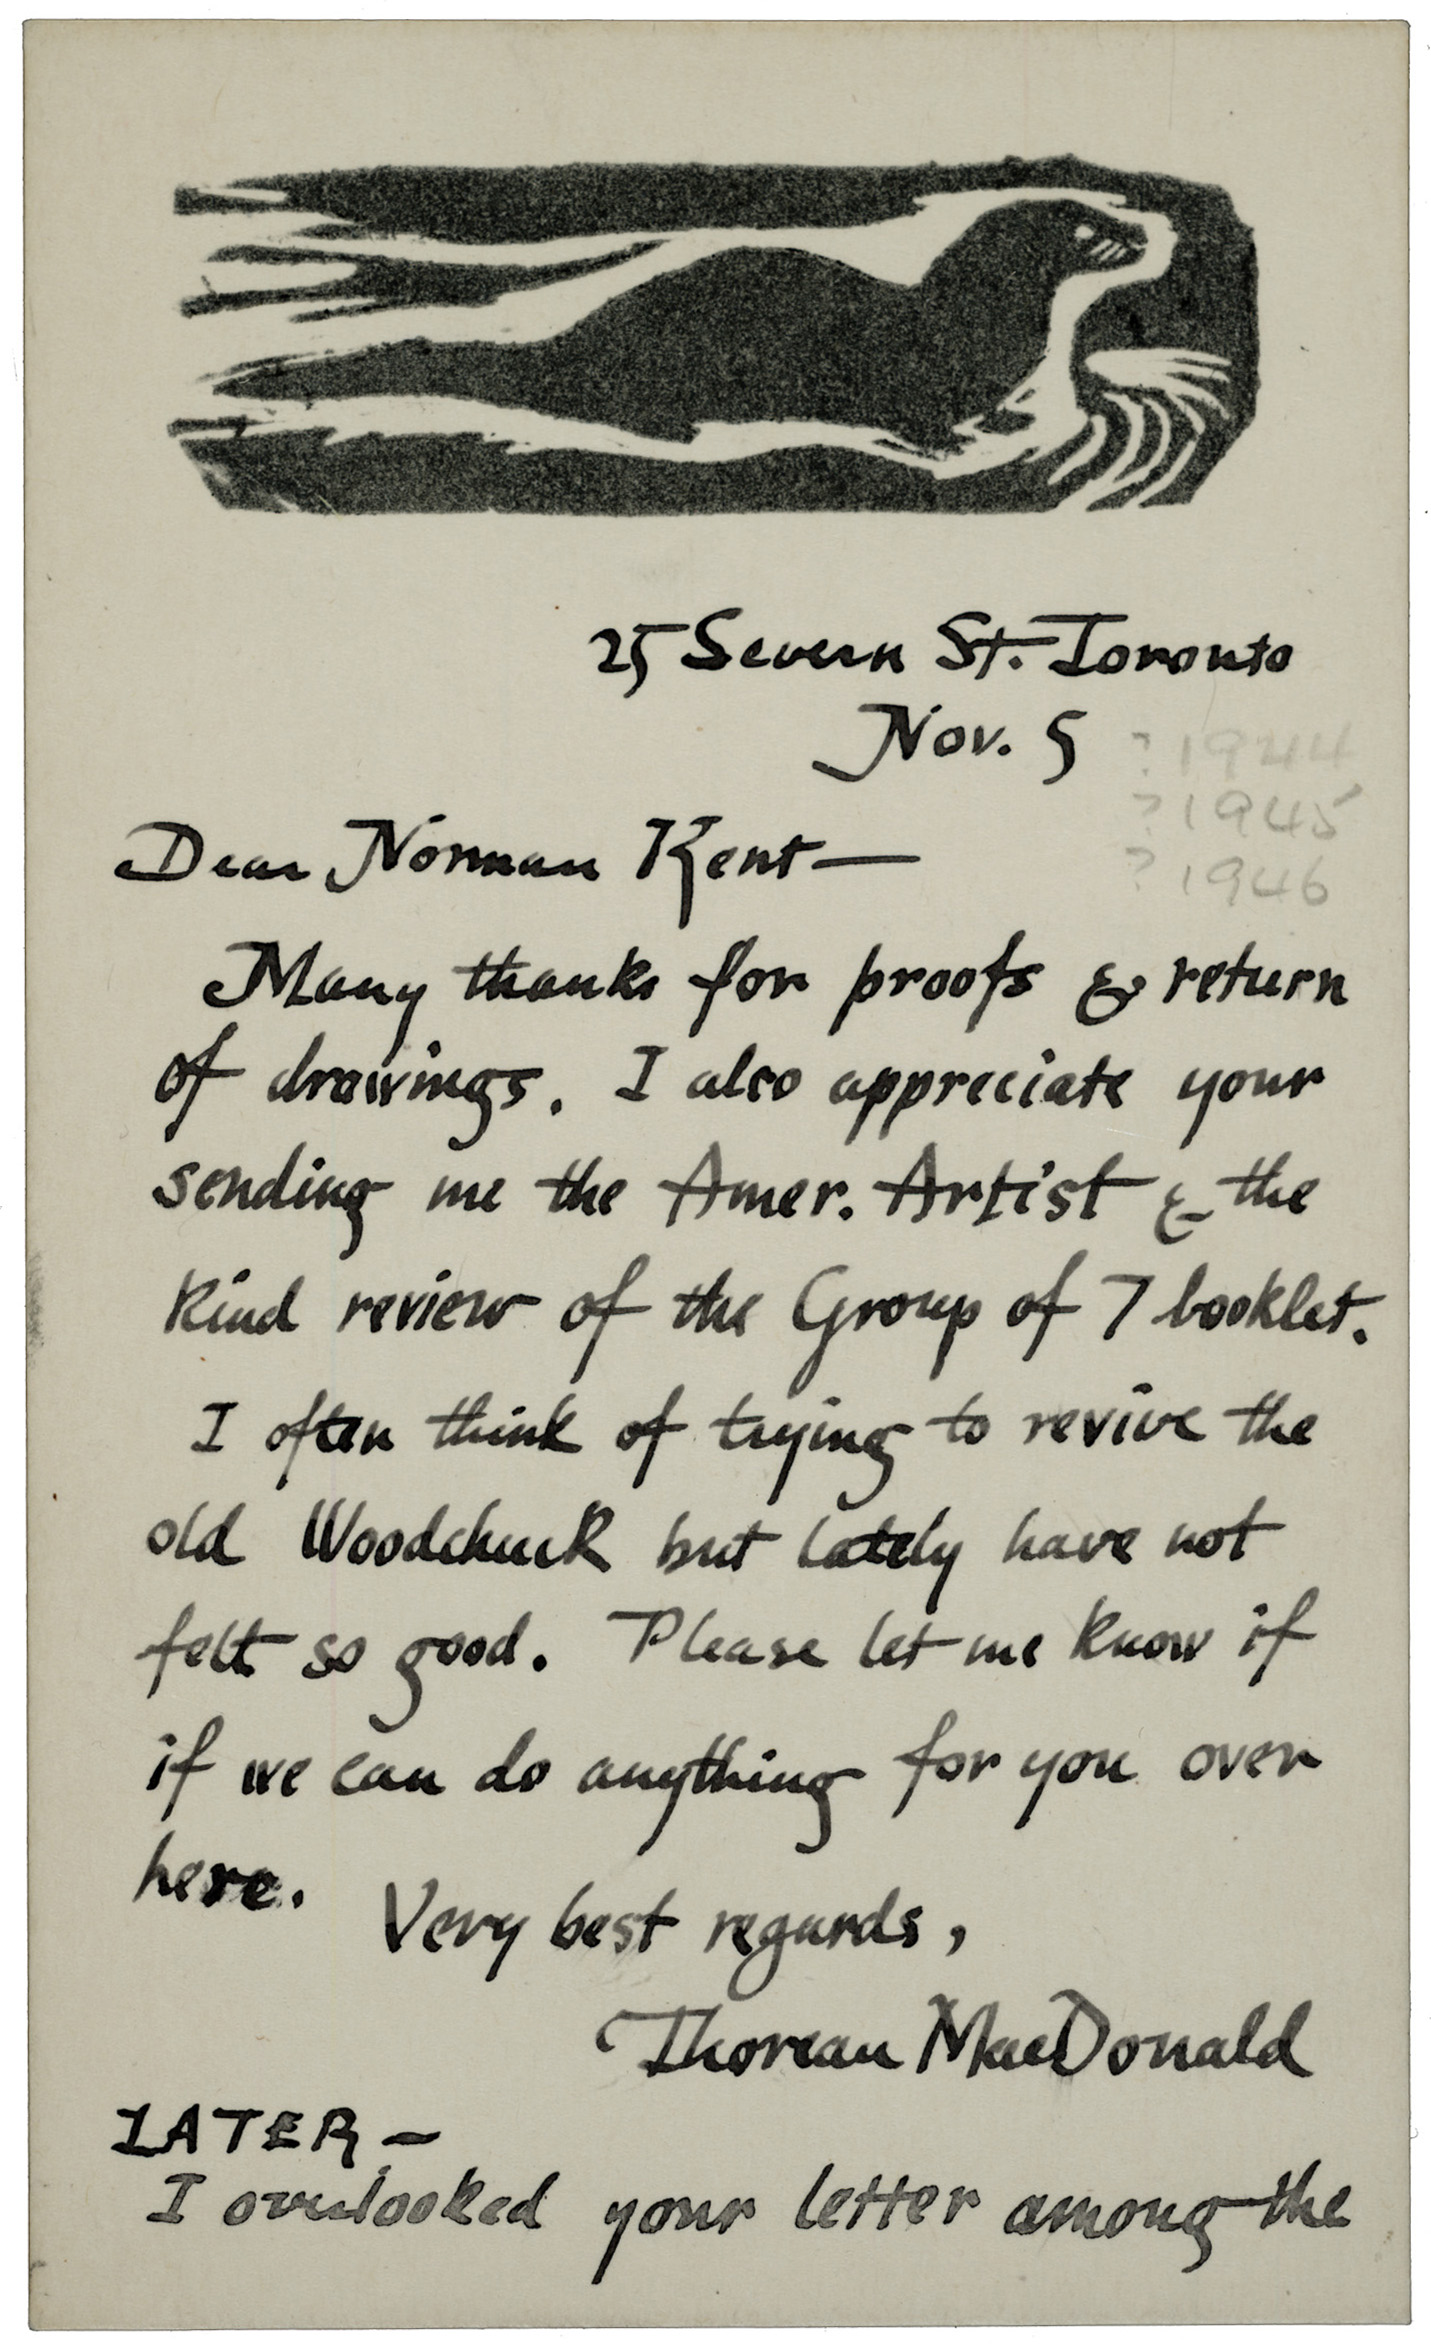 25 Severn St. Toronto
Nov. 5 ? 1944
? 1945
Dear Norman Kent —
? 1946
Many thanks for proofs & return
of drawings. I also appreciate your
sending me the Amer. Artist & the
kind review of the Group of 7 booklet.
I often think of trying to revive the
old Woodchuck but lately have not
felt so good. Please let me know if
if we can do anything for you over
here.
Very best regards,
Thoreau MacDonald
LATER —
I overlooked your letter among the